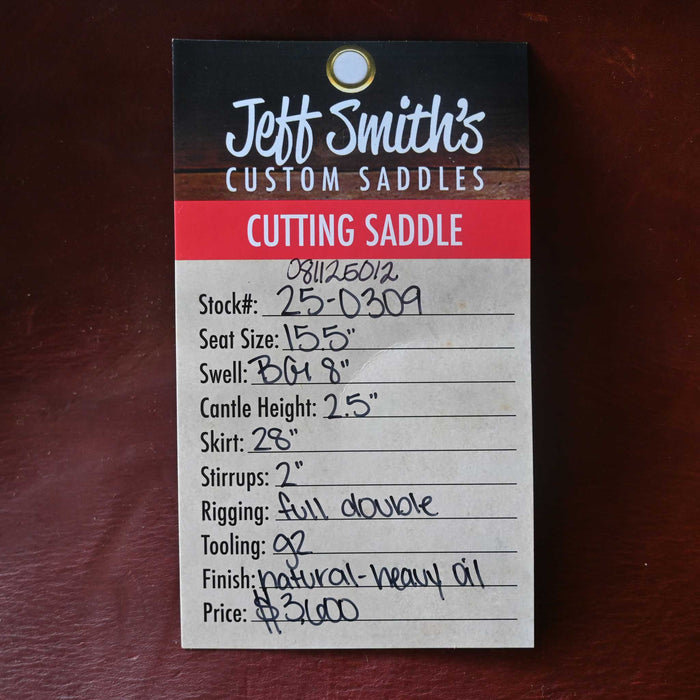 Jeff Smith's
CUSTOM SADDLES
CUTTING SADDLE
081125012
Stock#: 25-0309
Seat Size: 15.5"
Swell: BGH 8"
Cantle Height: 2.5"
Skirt: 28"
Stirrups: 2"
Rigging: full double
Tooling: g2
Finish: natural-heavy oil
Price: $3,600